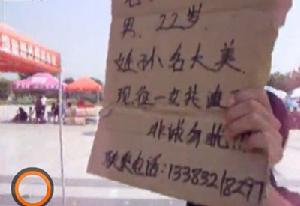 男. 22岁.
姓孙名大美.
现征一女共
非诚勿扰!
联系电话:13383218297